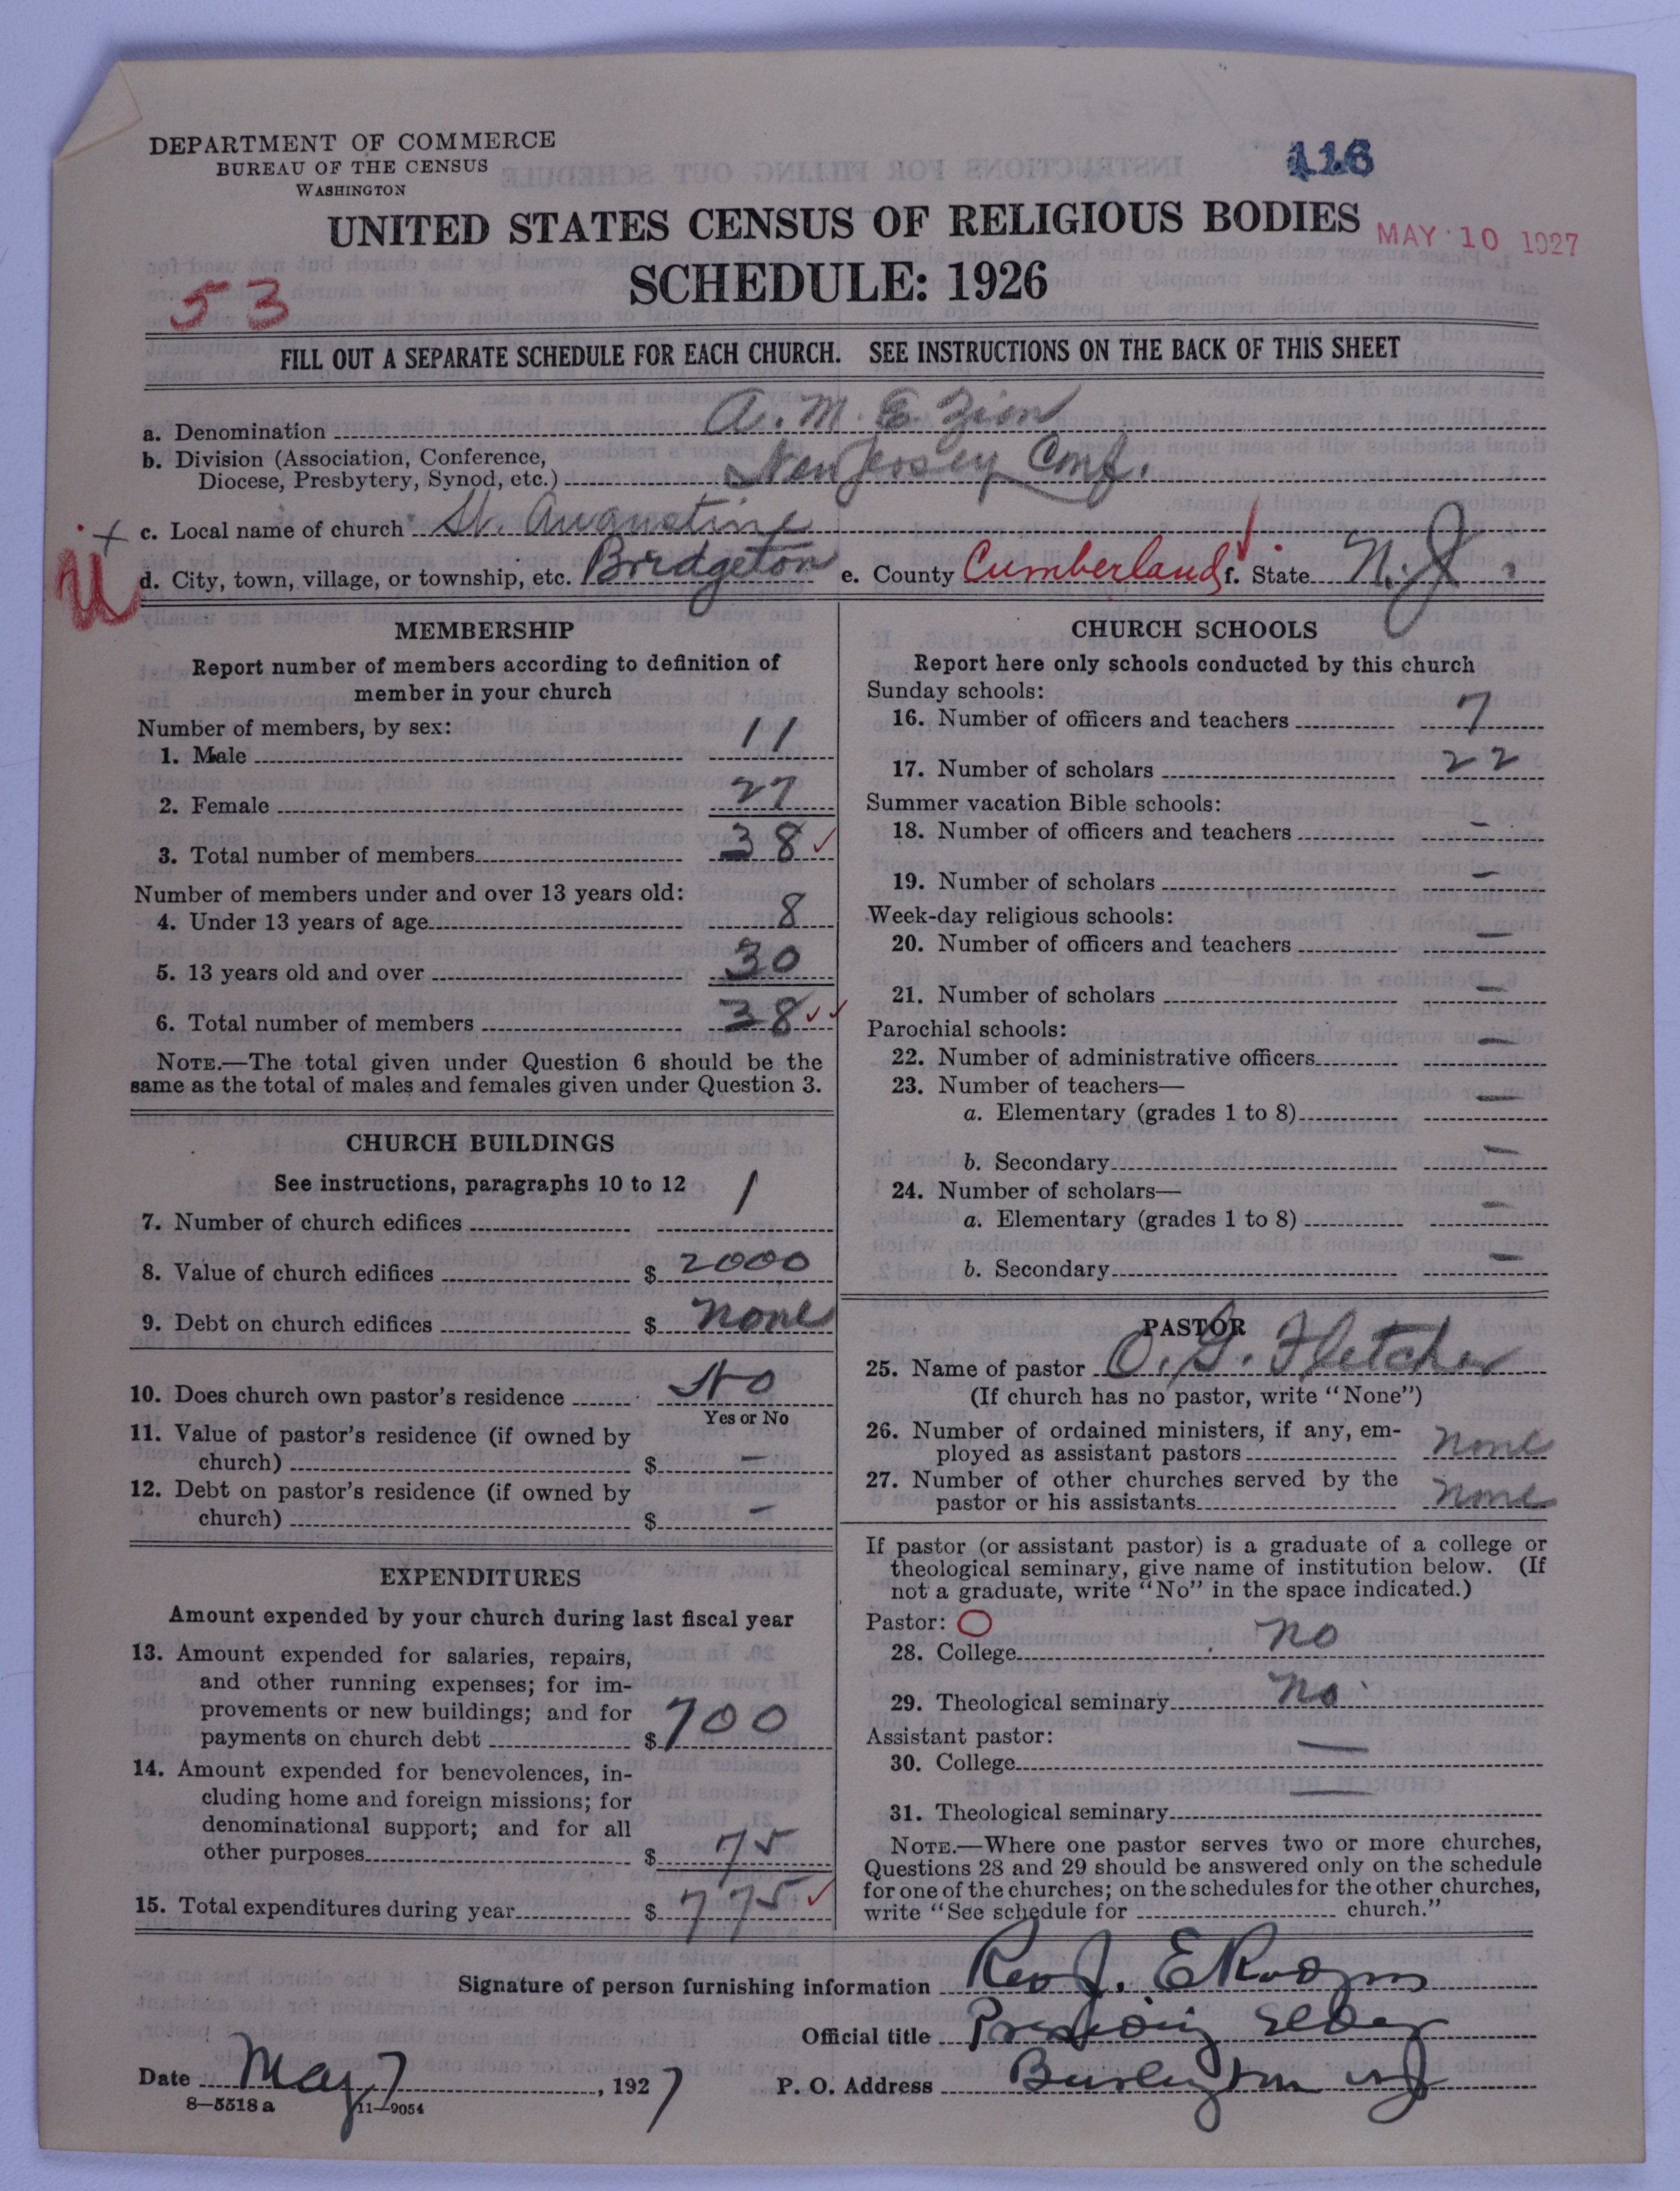 DEPARTMENT OF COMMERCE
BUREAU OF THE CENSUS
WASHINGTON
116
UNITED STATES CENSUS OF RELIGIOUS BODIES
MAY 10 1927
SCHEDULE: 1926
53
FILL OUT A SEPARATE SCHEDULE FOR EACH CHURCH. SEE INSTRUCTIONS ON THE BACK OF THIS SHEET
a. Denomination A. M. E. Zion
b. Division (Association, Conference,
Diocese, Presbytery, Synod, etc.) New Jersey Conf.
c. Local name of church St. Augustine
d. City, town, village, or township, etc. Bridgeton e. County Cumberland f. State N. J.
MEMBERSHIP
Report number of members according to definition of
member in your church
Number of members, by sex:
1. Male 11
2. Female 27
3. Total number of members 38
Number of members under and over 13 years old:
4. Under 13 years of age 8
5. 13 years old and over 30
6. Total number of members 38
NOTE.—The total given under Question 6 should be the
same as the total of males and females given under Question 3.
CHURCH BUILDINGS
See instructions, paragraphs 10 to 12
7. Number of church edifices 1
8. Value of church edifices $ 2000
9. Debt on church edifices $ none
10. Does church own pastor's residence No
Yes or No
11. Value of pastor's residence (if owned by
church) $ —
12. Debt on pastor's residence (if owned by
church) $ —
EXPENDITURES
Amount expended by your church during last fiscal year
13. Amount expended for salaries, repairs,
and other running expenses; for im-
provements or new buildings; and for
payments on church debt $ 700
14. Amount expended for benevolences, in-
cluding home and foreign missions; for
denominational support; and for all
other purposes $ 75
15. Total expenditures during year $ 775
CHURCH SCHOOLS
Report here only schools conducted by this church
Sunday schools:
16. Number of officers and teachers 7
17. Number of scholars 22
Summer vacation Bible schools:
18. Number of officers and teachers —
19. Number of scholars —
Week-day religious schools:
20. Number of officers and teachers —
21. Number of scholars —
Parochial schools:
22. Number of administrative officers —
23. Number of teachers—
a. Elementary (grades 1 to 8) —
b. Secondary —
24. Number of scholars—
a. Elementary (grades 1 to 8) —
b. Secondary —
PASTOR
25. Name of pastor O. G. Fletcher
(If church has no pastor, write "None")
26. Number of ordained ministers, if any, em-
ployed as assistant pastors none
27. Number of other churches served by the
pastor or his assistants none
If pastor (or assistant pastor) is a graduate of a college or
theological seminary, give name of institution below. (If
not a graduate, write "No" in the space indicated.)
Pastor:
28. College no
29. Theological seminary no
Assistant pastor:
30. College —
31. Theological seminary —
NOTE.—Where one pastor serves two or more churches,
Questions 28 and 29 should be answered only on the schedule
for one of the churches; on the schedules for the other churches,
write "See schedule for church."
Signature of person furnishing information Rev J. E
Official title Presiding Elder
Date May 7, 1927 P. O. Address Burlington NJ
8—5518 a 11—9054